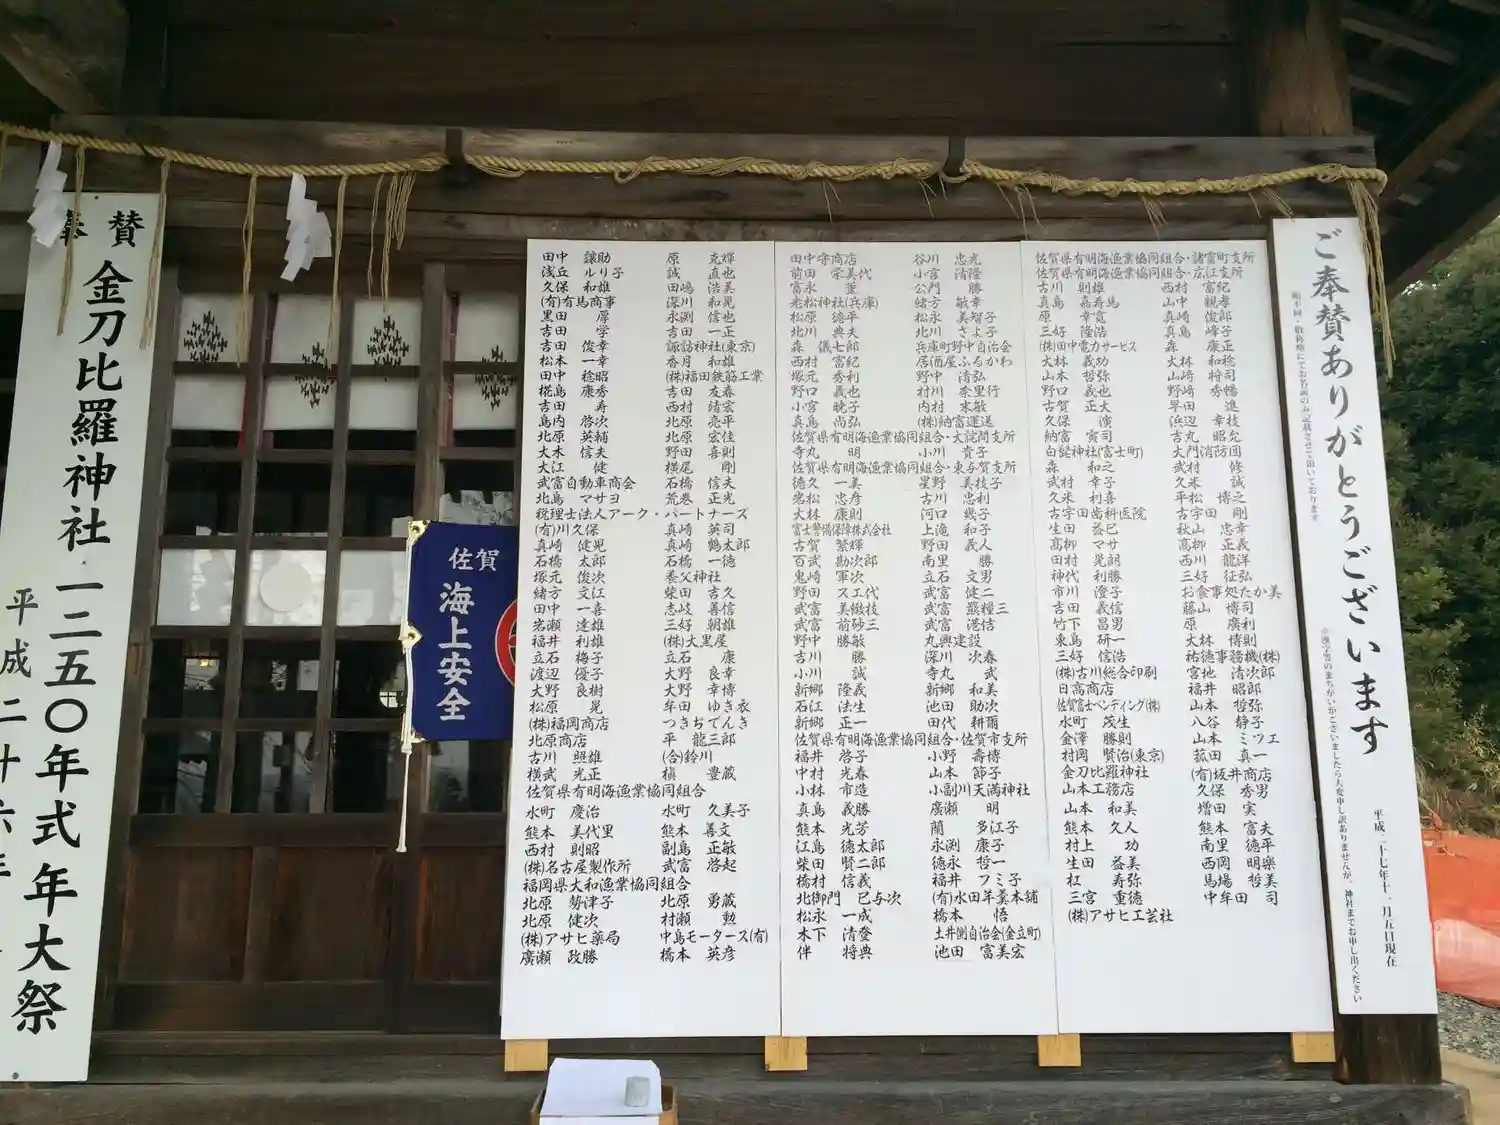 奉賛
金刀比羅神社 一二五〇年式年大祭
平成二十六年
佐賀
海上安全
ご奉賛ありがとうございます
順不同・敬称略にてお名前のみ記載させて頂いております
※漢字等のまちがいがございましたら大変申し訳ありませんが、神社までお申し出ください
平成二十七年十一月五日現在
田中 譲助 原 克輝
浅丘 ルリ子 誠 直也
久保 和雄 田嶋 浩美
(有)有馬商事 深川 和晃
黒田 厚 永渕 信也
吉田 学 吉田 一正
吉田 俊幸 諏訪神社(東京)
松本 一幸 香月 和雄
田中 稔昭 (株)福田鉄筋工業
椛島 康秀 吉田 友春
吉田 寿 西村 靖宏
島内 啓次 北原 亮平
北原 英輔 北原 宏佳
大木 信夫 野田 喜則
大江 健 横尾 剛
武富自動車商会 石橋 信夫
北島 マサヨ 荒巻 正光
税理士法人アーク・パートナーズ
(有)川久保 真崎 英司
真崎 健児 真崎 鶴太郎
石橋 太郎 石橋 一徳
塚元 俊次 養父神社
緒方 文江 柴田 吉久
田中 一喜 志岐 善信
岩瀬 達雄 三好 朝雄
福井 利雄 (株)大黒屋
立石 梅子 立石 康
渡辺 優子 大野 良幸
大野 良樹 大野 幸博
松原 晃 牟田 ゆき衣
(株)福岡商店 つきぢでんき
北原商店 平 龍三郎
古川 照雄 (合)鈴川
横武 光正 槇 豊蔵
佐賀県有明海漁業協同組合
水町 慶治 水町 久美子
熊本 美代里 熊本 善文
西村 則昭 副島 正敏
(株)名古屋製作所 武富 啓起
福岡県大和漁業協同組合
北原 勢津子 北原 勇蔵
北原 健次 村瀬 勲
(株)アサヒ薬局 中島モータース(有)
廣瀬 政勝 橋本 英彦
田中守商店 谷川 忠光
前田 栄美代 小宮 清隆
富永 董 公門 勝
老松神社(兵庫) 緒方 敏幸
松原 徳平 松永 美智子
北川 典夫 北川 さよ子
森 儀七郎 兵庫町野中自治会
西村 富紀 居酒屋ふるかわ
塚元 秀利 野中 清弘
野口 義也 村川 奈里行
小宮 暁子 内村 末敏
真島 尚弘 (株)納富運送
佐賀県有明海漁業協同組合・大詫間支所
寺丸 明 小川 貴子
佐賀県有明海漁業協同組合・東与賀支所
徳久 一美 星野 美枝子
老松 忠彦 古川 忠利
大林 康則 河口 幾子
富士警備保障株式会社 上滝 和子
古賀 繁輝 野田 義人
百武 勘次郎 南里 勝
鬼崎 軍次 立石 文男
野田 スエ代 武富 健二
武富 美緻枝 武富 熊糧三
武富 前砂三 武富 港悟
野中 勝敏 丸興建設
吉川 勝 深川 次春
小川 誠 寺丸 武
新郷 隆義 新郷 和美
石江 法生 池田 助次
新郷 正一 田代 耕爾
佐賀県有明海漁業協同組合・佐賀市支所
福井 啓子 小野 壽博
中村 光春 山本 節子
小林 市造 小副川天満神社
真島 義勝 廣瀬 明
熊本 光芳 蘭 多江子
江島 徳太郎 永渕 康子
柴田 賢二郎 徳永 哲一
橋村 信義 福井 フミ子
北御門 巳与次 (有)水田羊羹本舗
松永 一成 橋本 悟
木下 清登 土井側自治会(金立町)
伴 将典 池田 富美宏
佐賀県有明海漁業協同組合・諸富町支所
佐賀県有明海漁業協同組合・広江支所
古川 則雄 西村 富紀
真島 嘉寿馬 山中 観孝
原 幸寛 真崎 俊郎
三好 隆浩 真島 峰子
(株)田中電力サービス 森 康正
大林 義功 大林 和稔
山本 哲弥 山﨑 将司
野口 義也 野﨑 秀幡
古賀 正大 早田 進
久保 濱 浜辺 幸枝
納富 寅司 吉丸 昭允
白髭神社(富士町) 大門消防団
森 和之 武村 修
武村 幸子 久米 誠
久米 利喜 平松 博之
古宇田歯科医院 古宇田 剛
生田 益巳 秋山 忠幸
髙柳 マサ 髙柳 正義
田村 晃朗 西川 龍洋
神代 利勝 三好 征弘
市川 澄子 お食事処たか美
吉田 義信 藤山 博司
竹下 昌男 原 廣利
東島 研一 大林 博則
三好 信浩 祐徳事務機(株)
(株)古川総合印刷 宮地 清次郎
日高商店 福井 昭郎
佐賀富士ベンディング(株) 山本 哲弥
水町 茂生 八谷 静子
金澤 勝則 山本 ミツエ
村岡 賢治(東京) 菰田 真一
金刀比羅神社 (有)坂井商店
山本工務店 久保 秀男
山本 和美 増田 実
熊本 久人 熊本 富夫
村上 功 南里 徳平
生田 益美 西岡 明樂
杠 寿弥 馬場 哲美
三宮 重徳 中牟田 司
(株)アサヒ工芸社